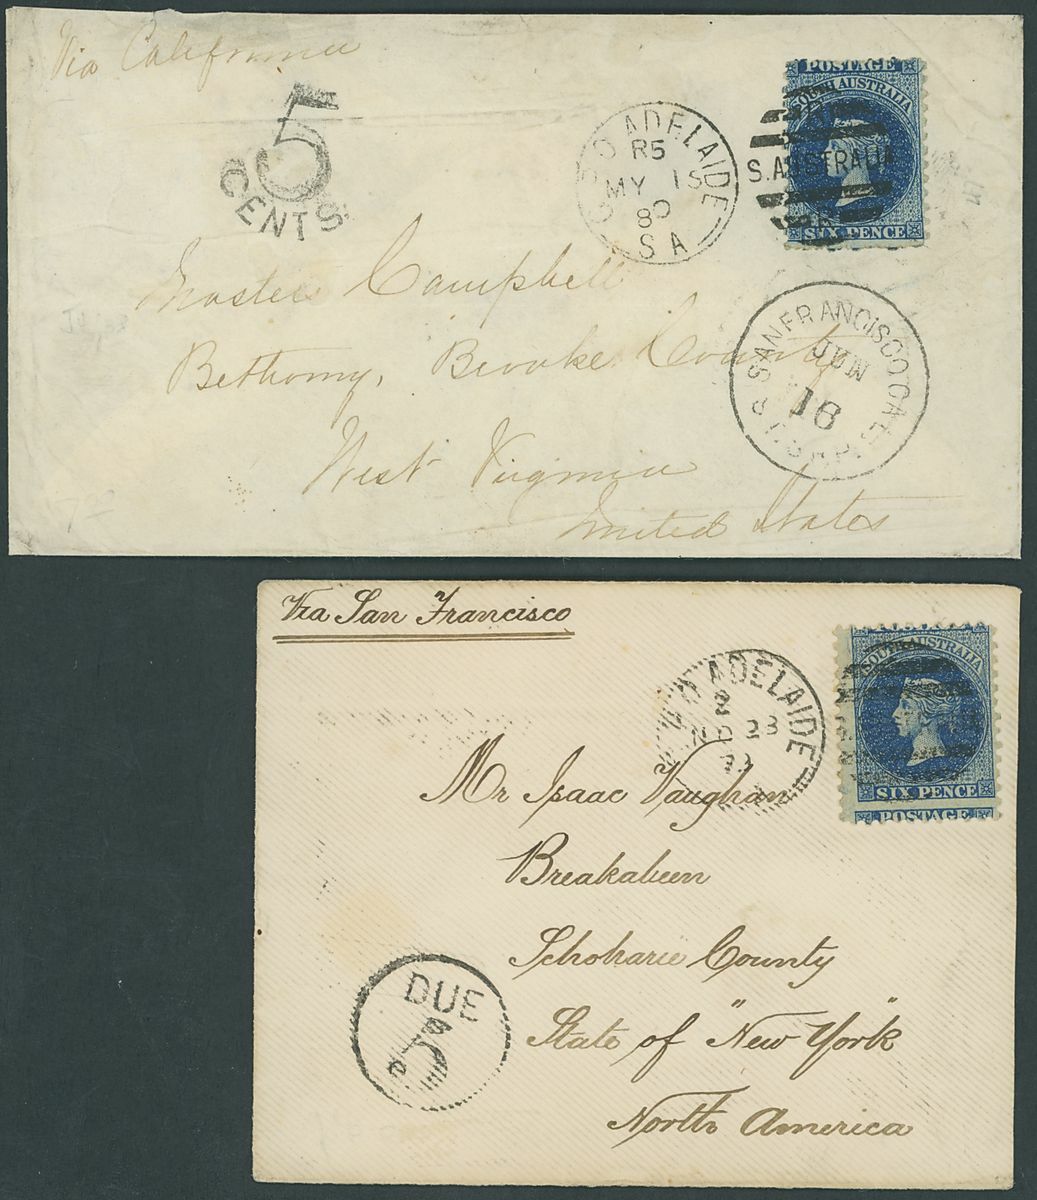 Via California
5
CENTS
G.P.O. ADELAIDE
R5
MY 15
80
S A
POSTAGE
SOUTH AUSTRALIA
S. AUSTRALIA
SIX PENCE
Master Campbell
Bethany, Brooke County
West Virginia
United States
SAN FRANCISCO CAL.
JUN
16
Via San Francisco
ADELAIDE
2
23
SOUTH AUSTRALIA
SIX PENCE
POSTAGE
Mr Isaac Vaughan
Breakabeen
Schoharie County
State of "New York"
North America
DUE
5